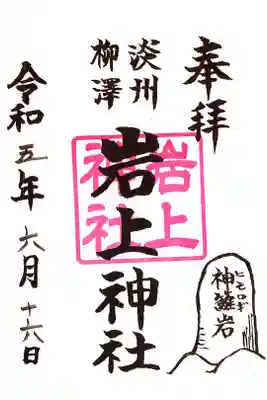 奉拝
淡州
柳澤
岩上神社
岩上
神社
令和五年六月十六日
ヒモロギ
神籬岩